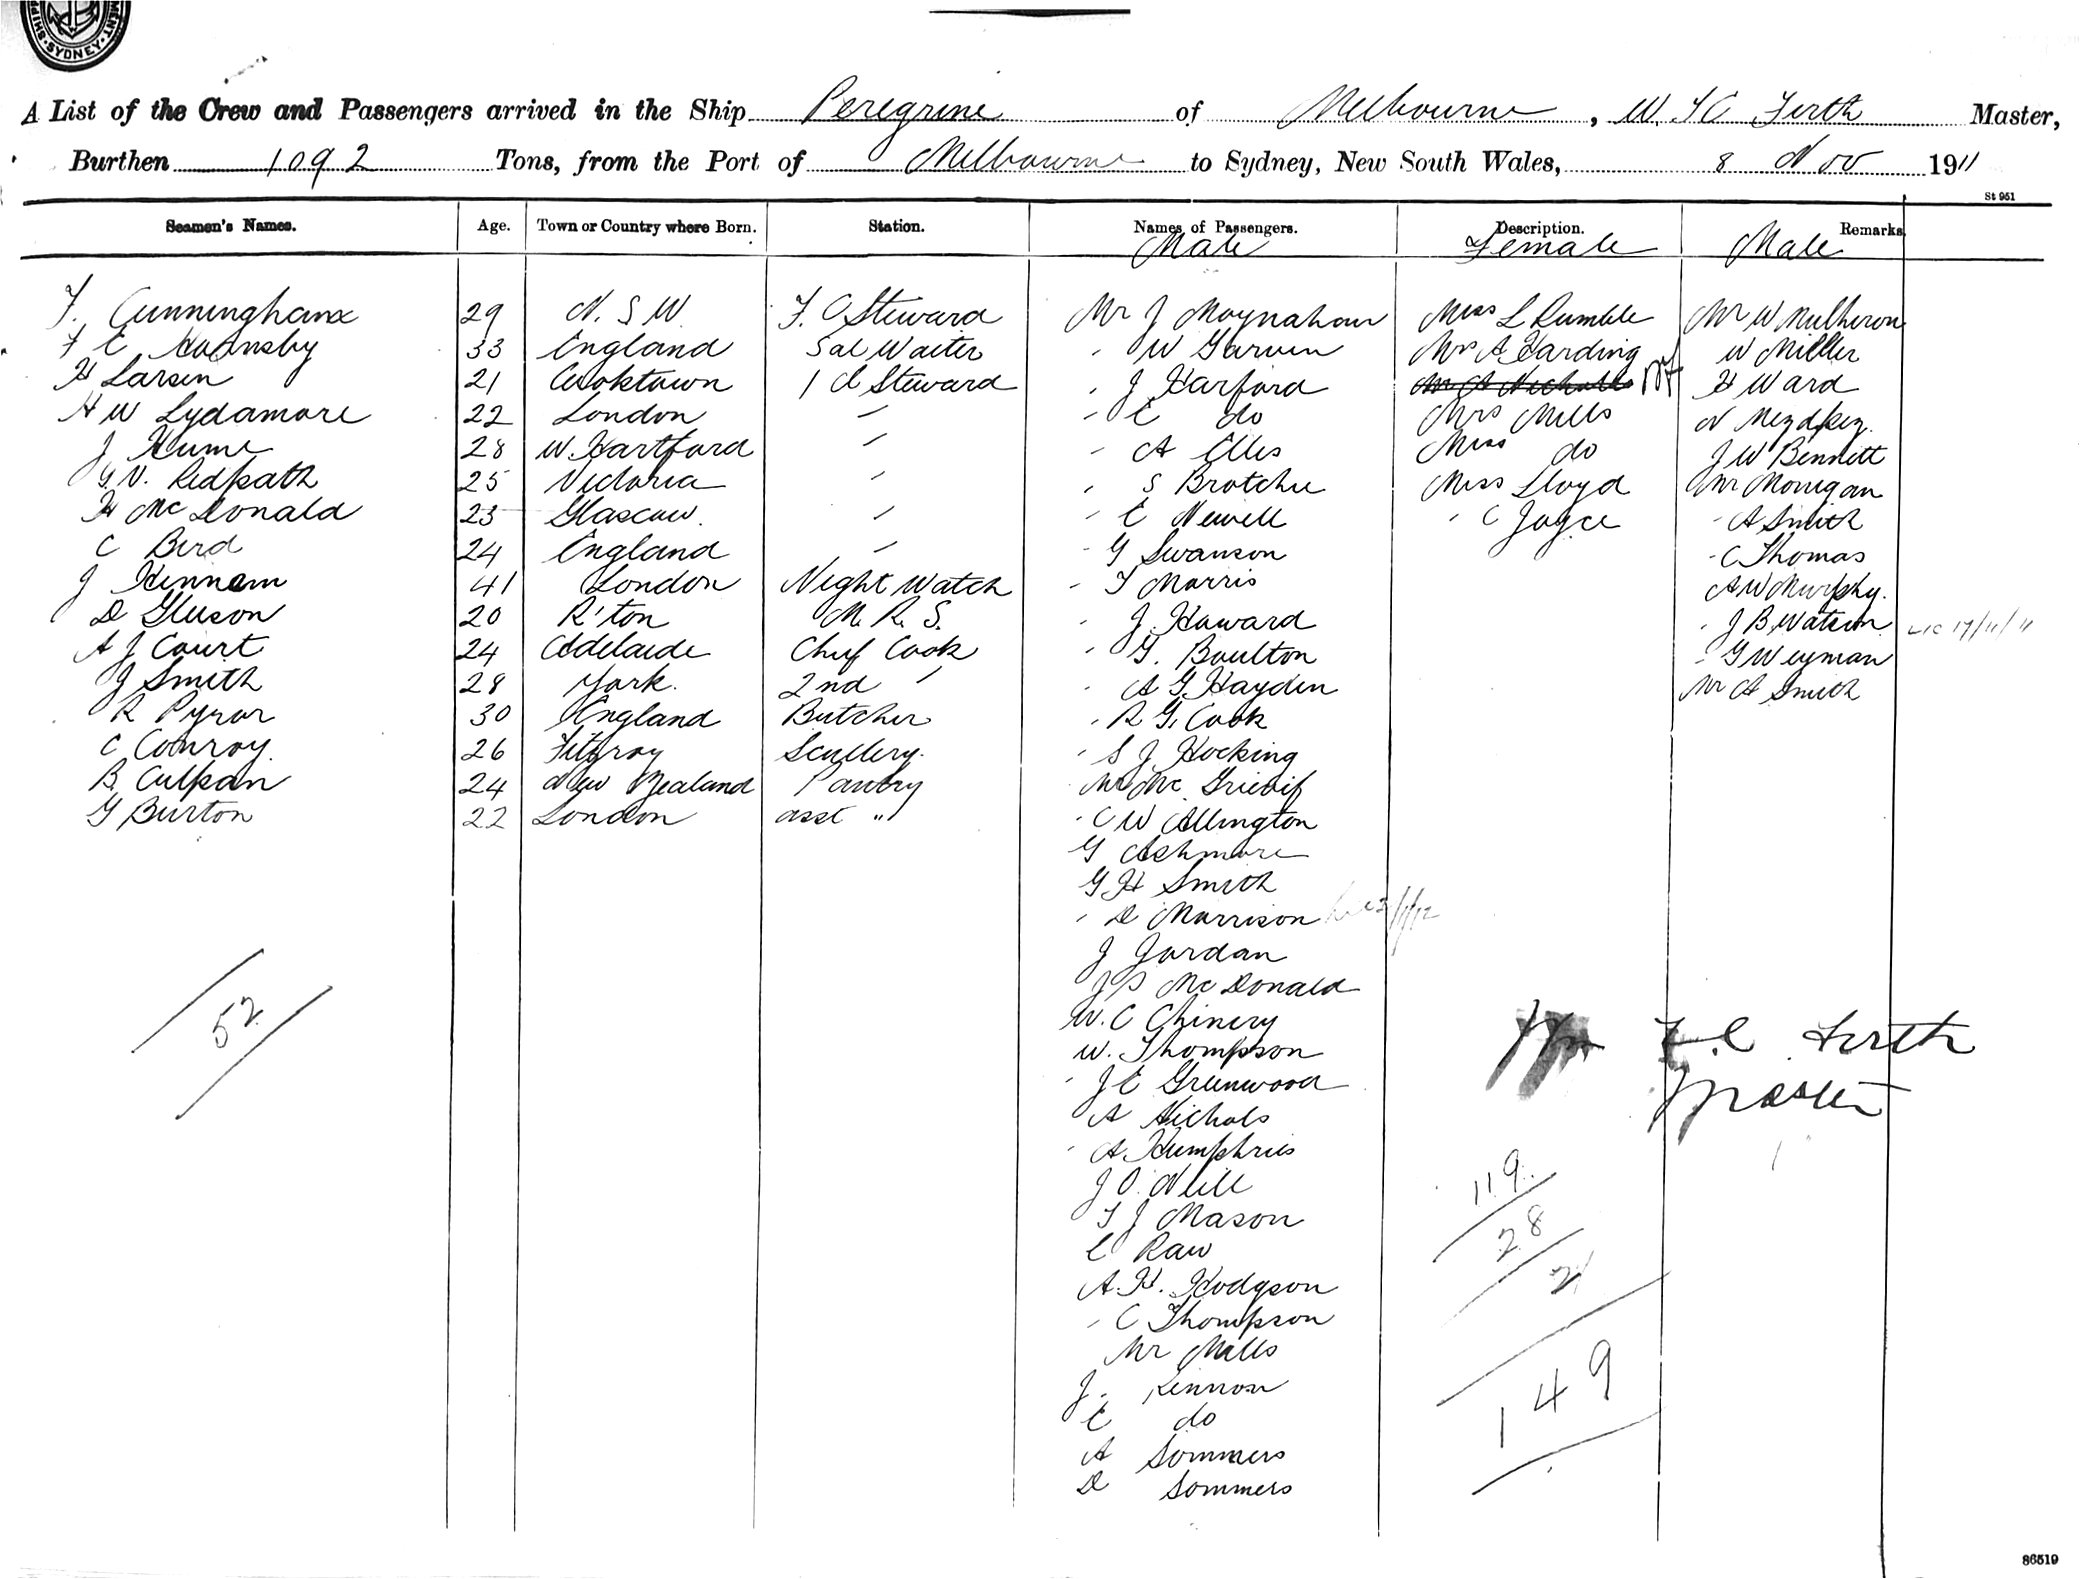 SYDNEY
A List of the Crew and Passengers arrived in the Ship Peregrine of Melbourne, W. F C Firth Master,
Burthen 1092 Tons, from the Port of Melbourne to Sydney, New South Wales, 8 Nov 1911
St 951
Seamen's Names. Age. Town or Country where Born. Station. Names of Passengers. Description. Remarks
Male Female Male
F. Cunningham 29 N. S. W. F. C Steward Mr J Moynahan Miss L Rumble Mr W Mulheron
F E Hornsby 33 England Sal Waiter " W Garven Mrs A Harding W Miller
H Larsen 21 Cooktown 1 C Steward " J Harford H Ward
H W Lydamore 22 London " " E do Mrs Mills
J Hume 28 W. Hartford " " A Elles Miss do J W Bennett
G V. Redpath 25 Victoria " " S Brotchie Miss Lloyd Mr Monigan
H McDonald 23 Glascow. " " E Newell " C Joyce " A Smith
C Bird 24 England " " G Swanson " C Thomas
J Hennam 41 London Night Watch " T Morris A W Murphy.
D Gleeson 20 R'ton M. R. S. " J. Howard " J B Watson 17/11/11
A J Court 24 Adelaide Chef Cook " G. Boulton " G Weyman
J Smith 28 York. 2nd " " A G. Hayden Mr A Smith
R Pyror 30 England Butcher " R G. Cook
C Conroy. 26 Fitzroy Scullery. " S J. Hocking
B Culpan 24 New Zealand Pantry Mr Mc
G Burton 22 London asst " " C W Allington
G Ashmore
G H Smith
" D Morrison
J Jordan
J S McDonald
W. C Chinery
W. Thompson
" J E Greenwood
A Nichols
" A. Humphries
J O. Neill
T J Mason
E Raw
A. H. Hodgson
" C Thompson
Mr Mills
J. Lennon
E do
A Sommers
D Sommers
52
Wm F. C Firth
Master
119
28
2
149
86519